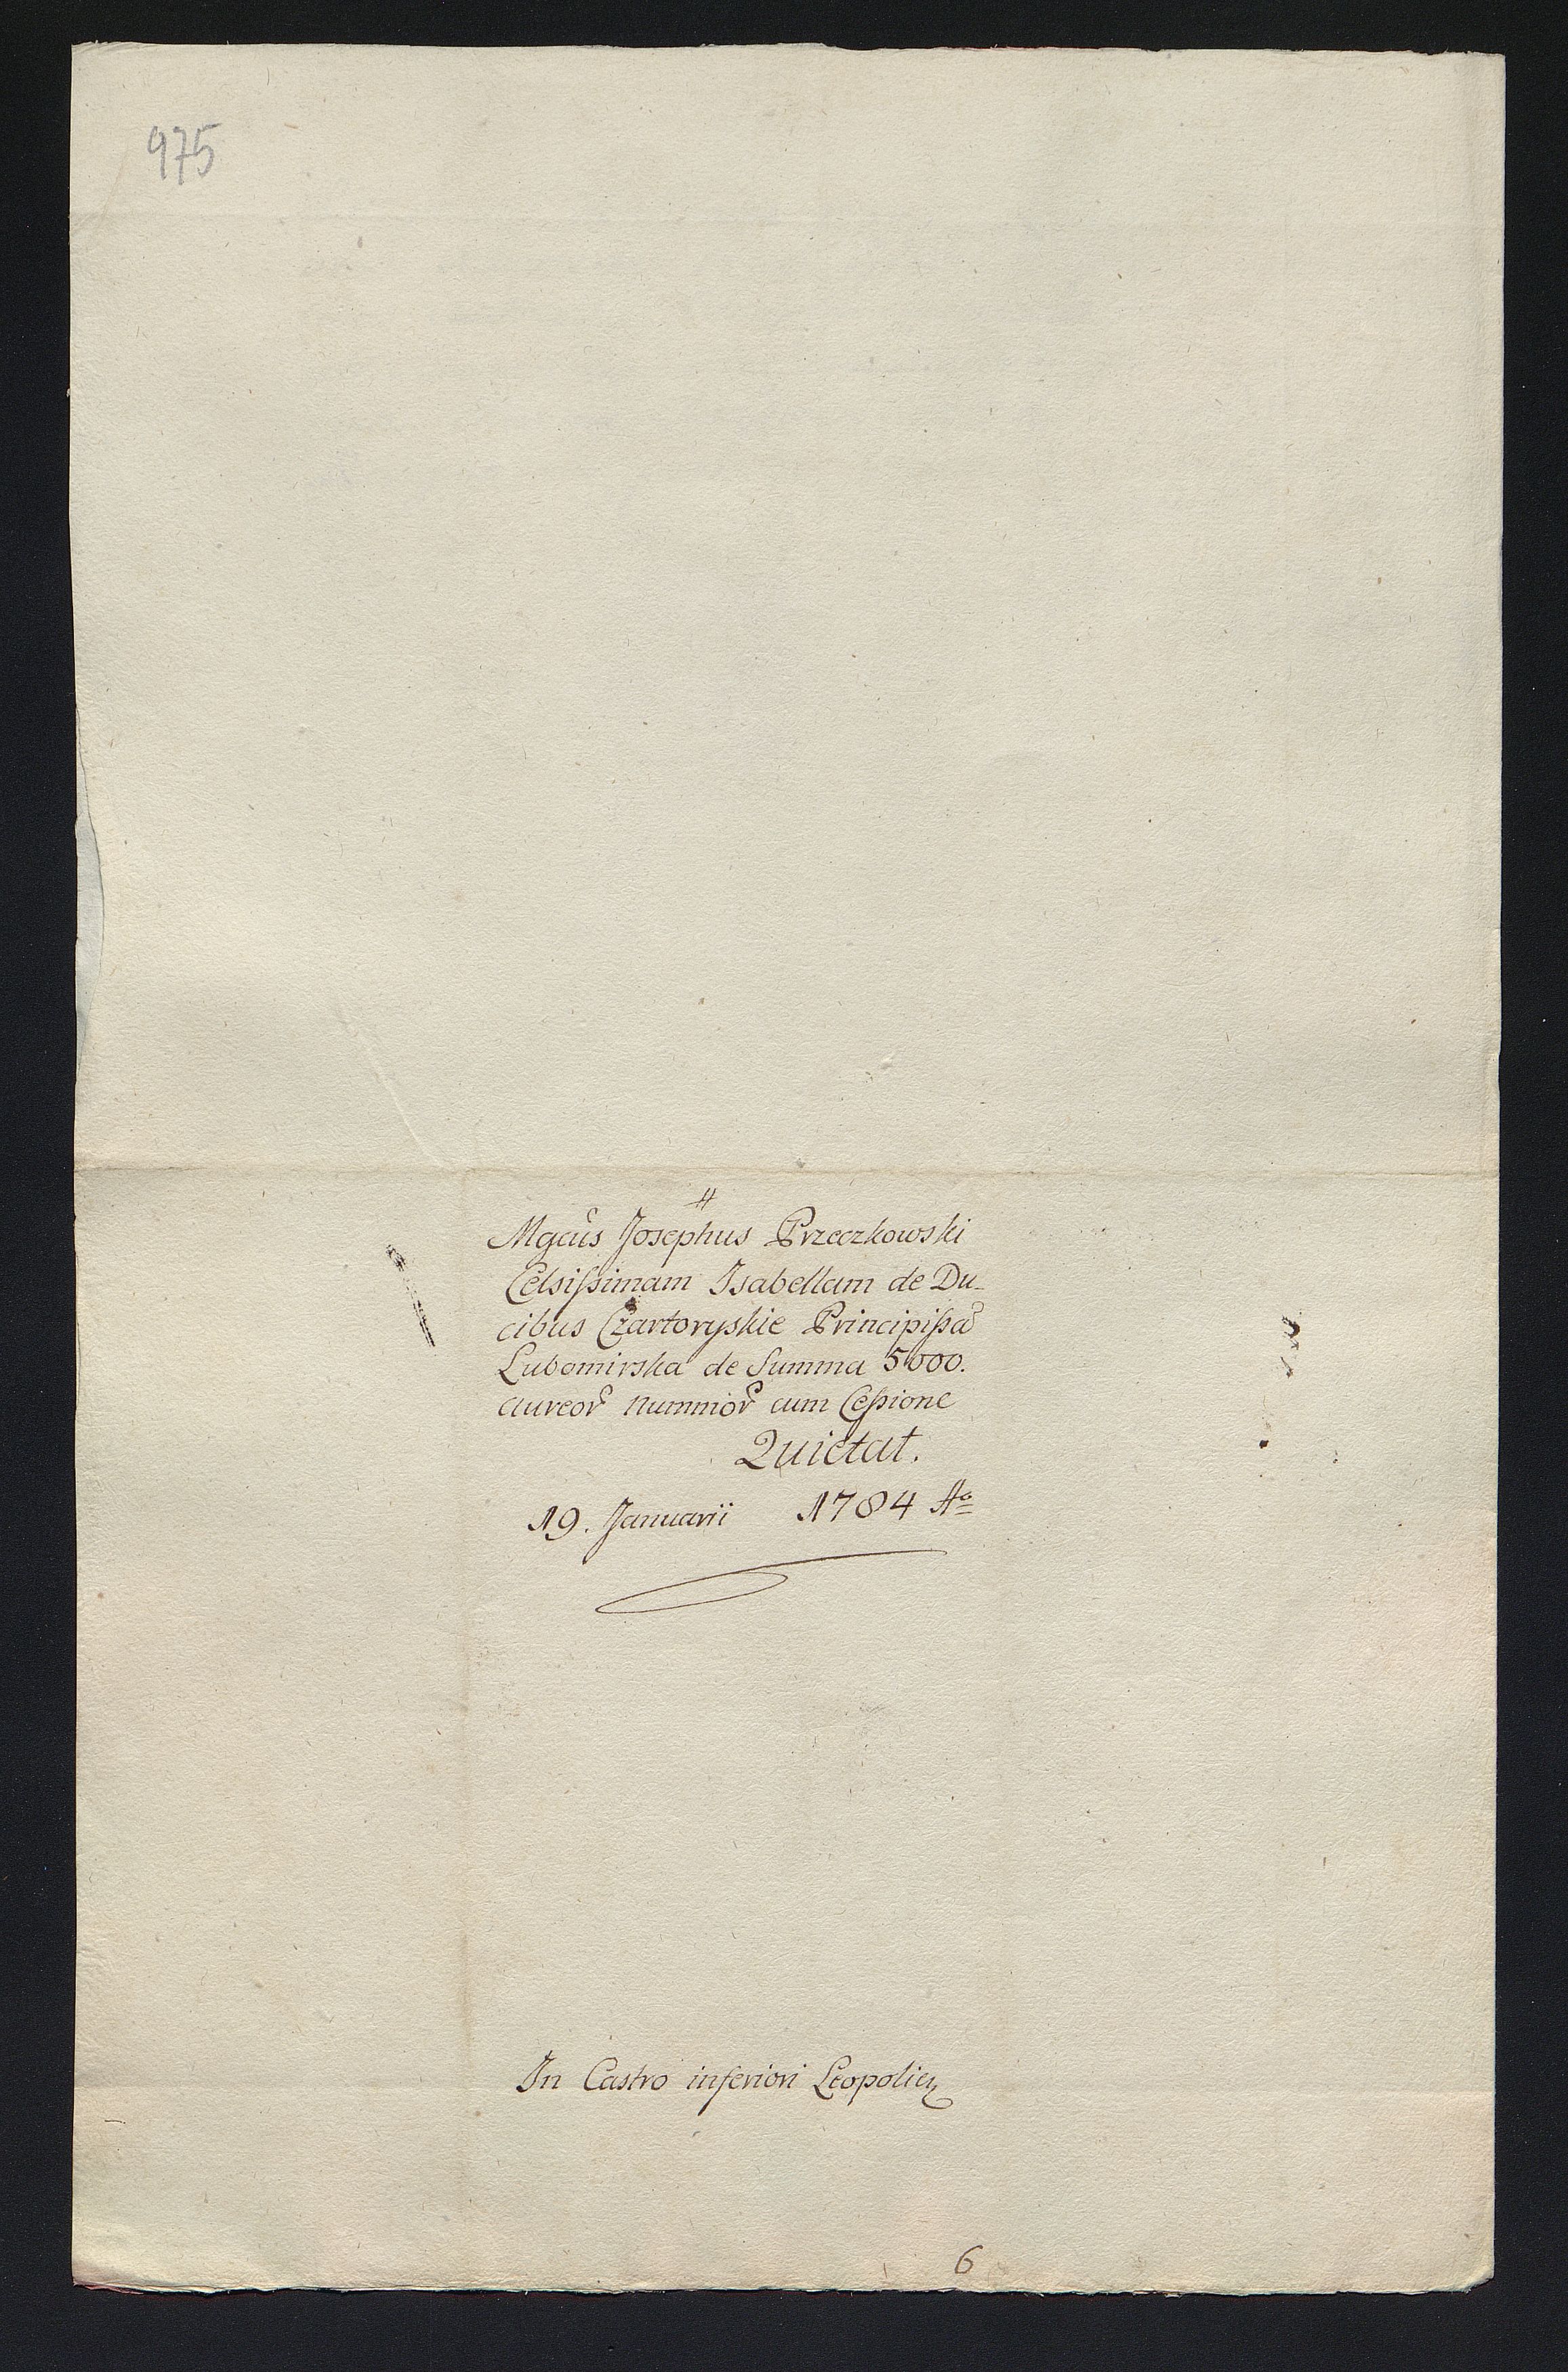 975
#
Mgcus Josephus Przeczkowski
Celsissimam Isabellam de Du-
cibus Czartoryskie Principissã
Lubomirska de Summa 5000.
aureor̃ nummor̃ cum Cessione
Quietat.
19. Januarii 1784 Aº
In Castro inferiori Leopolien
6